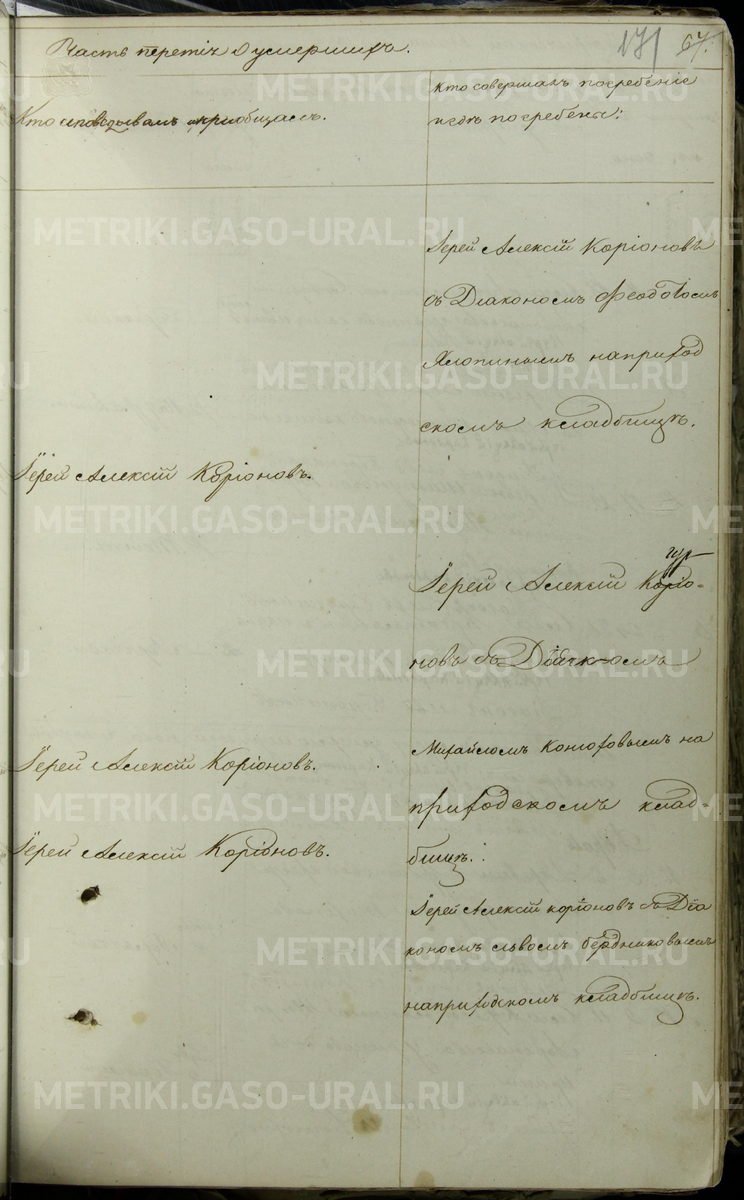 Часть третія О умершихъ.
171 67.
Кто исповѣдывалъ и приобщалъ.
Кто совершалъ погребеніе
и гдѣ погребены:
Іерей Алексій Каріоновъ
съ Діакономъ Феодотомъ
Хлопинымъ на приход
скомъ кладбищѣ.
Іерей Алексій Каріоновъ.
Іерей Алексій Каріо-
новъ съ Дьячкомъ
Михайломъ Конюховымъ на
приходскомъ клад-
бищѣ.
Іерей Алексій Каріоновъ.
Іерей Алексій Каріоновъ.
Іерей Алексій Каріоновъ съ Діа
кономъ Львомъ Бердниковымъ
на приходскомъ кладбищѣ.
METRIKI.GASO-URAL.RU